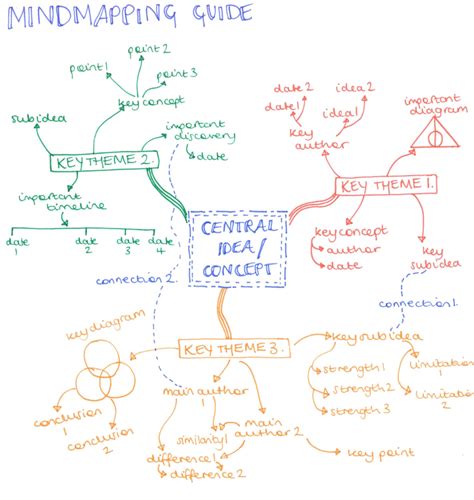 MINDMAPPING GUIDE
point 2
point 1
point 3
key concept
subidea
important
discovery
date
KEY THEME 2.
important
timeline
date
1
date
2
date
3
date
4
date 2
idea 2
date 1
idea 1
key
author
important
diagram
KEY THEME 1.
key concept
author
date
key
subidea
CENTRAL
IDEA/
CONCEPT
connection 2.
connection 1.
key diagram
KEY THEME 3.
key subidea
conclusion
1
conclusion
2
main author
1
similarity 1
main
author 2
difference 1
difference 2
key point
strength 1
strength 2
strength 3
limitation
1
limitation
2